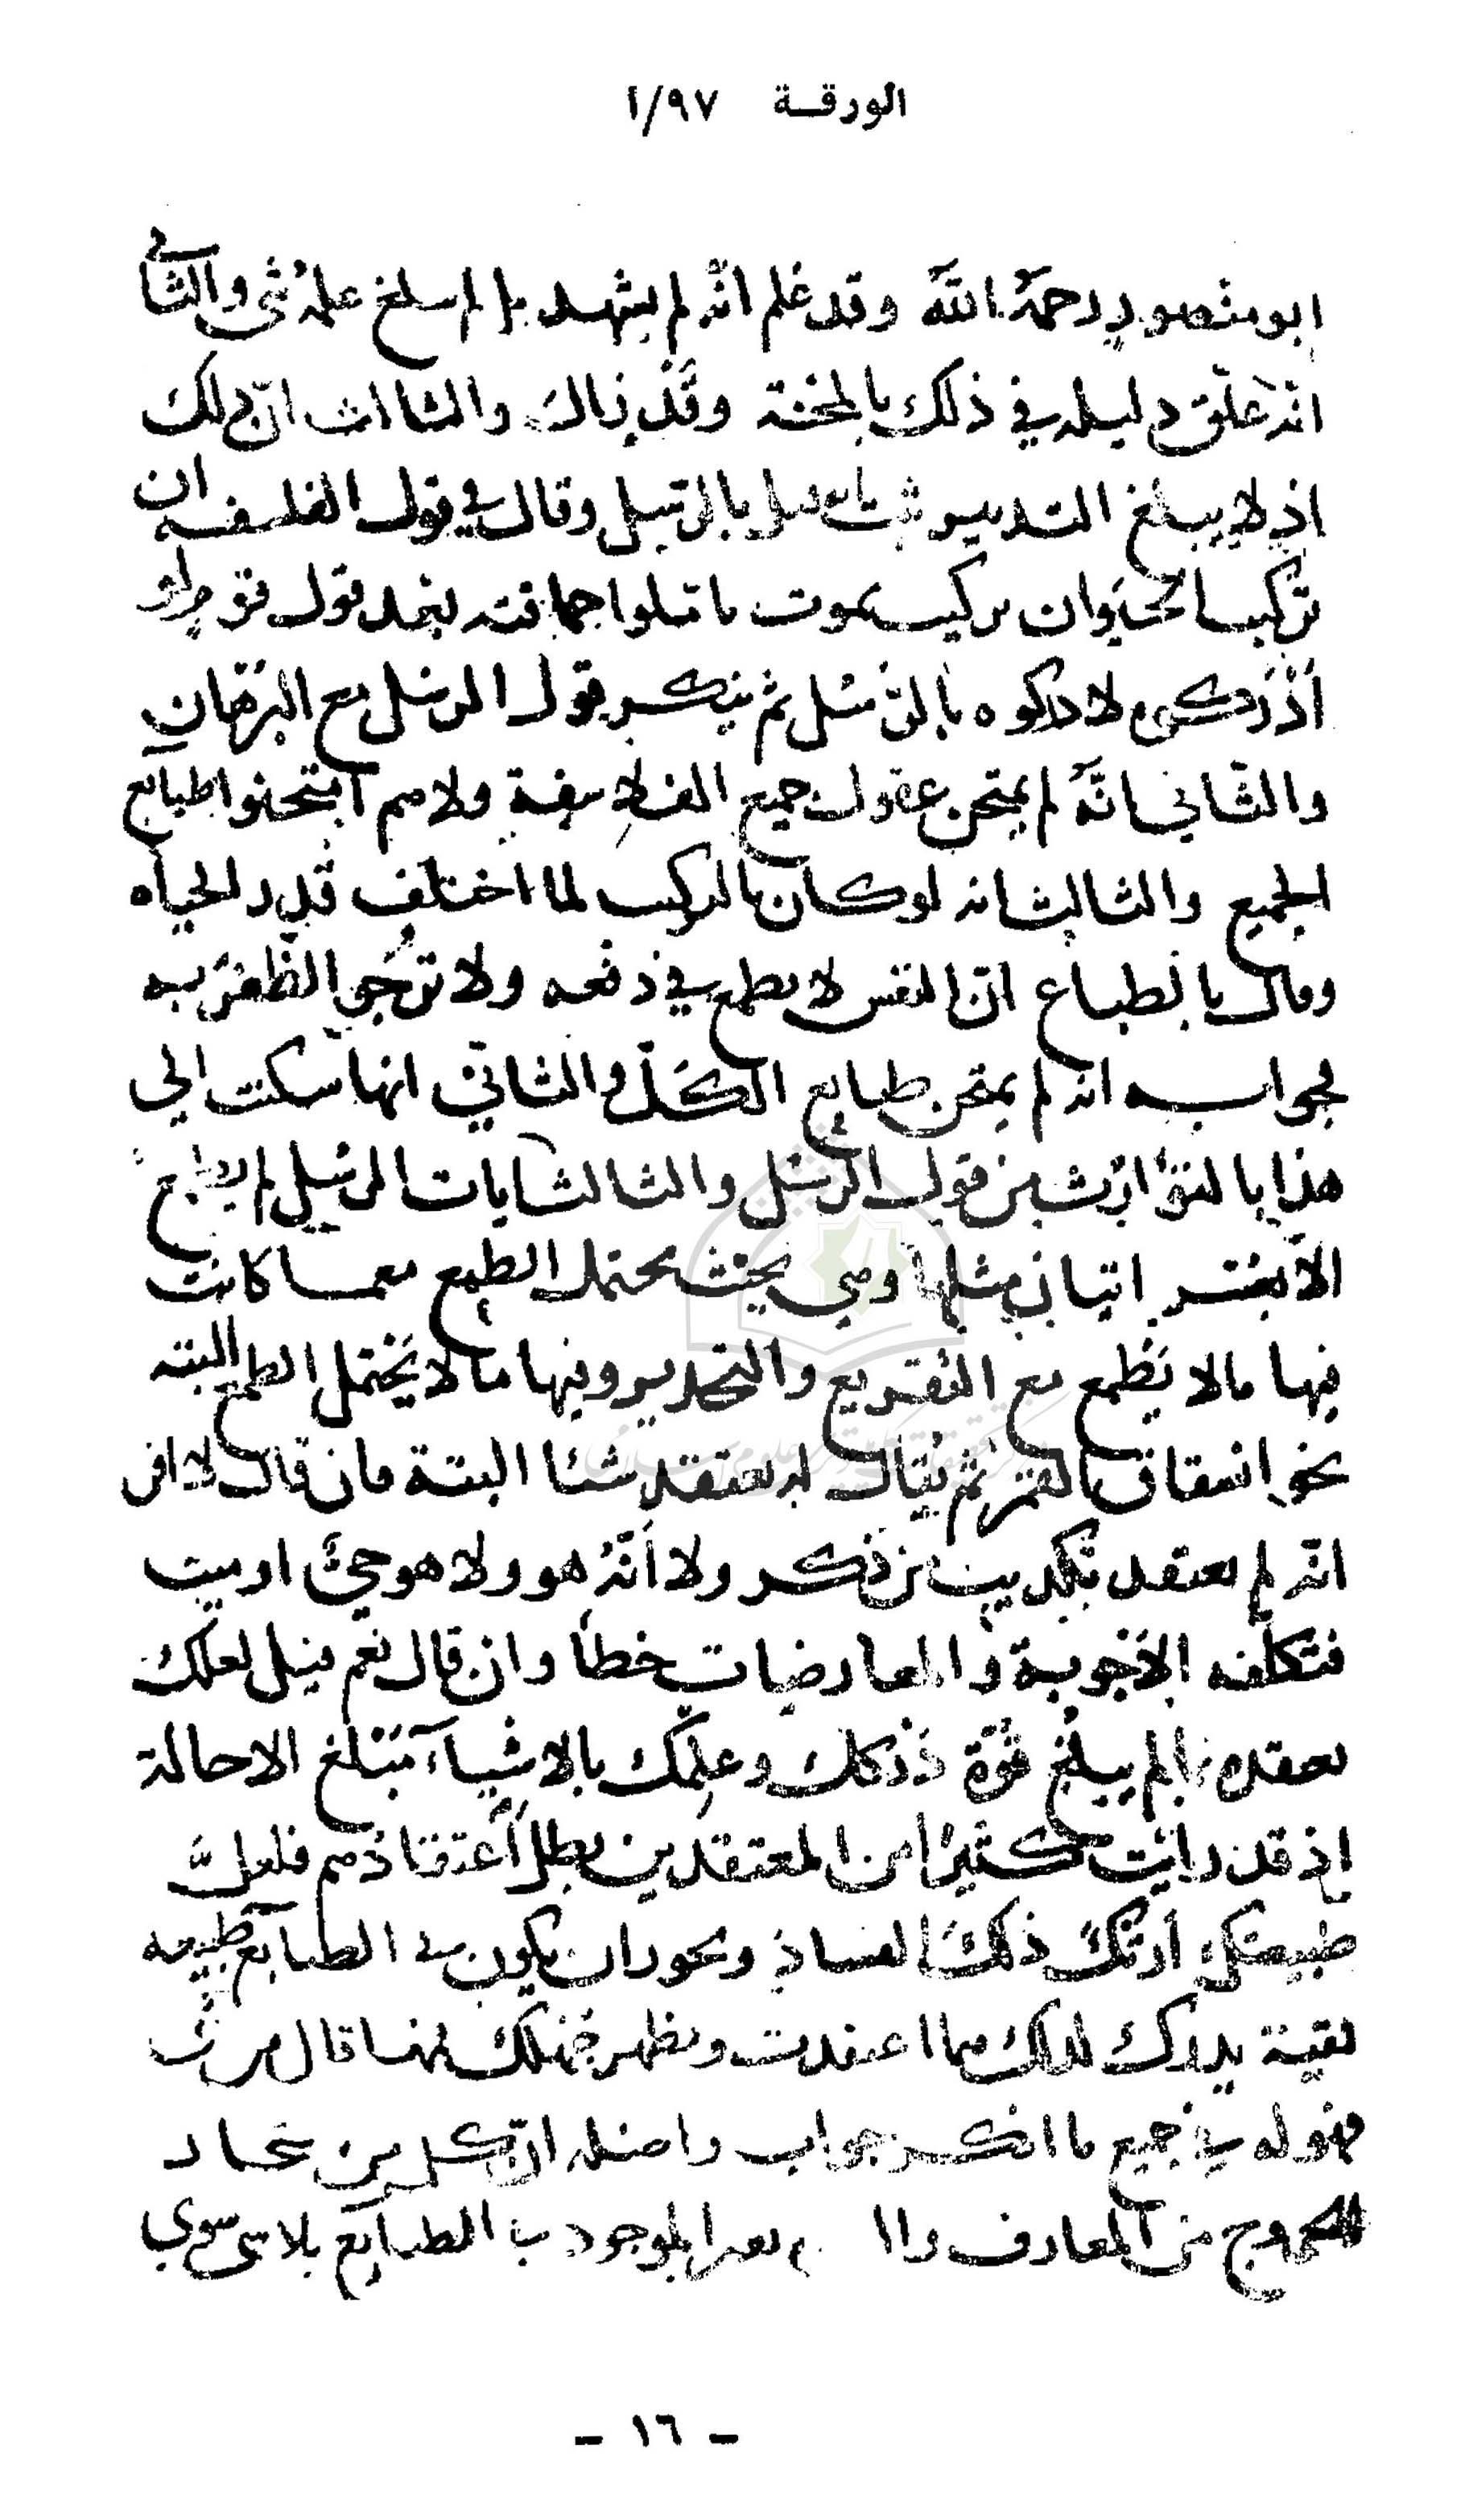 الورقة ٩٧/١
ابو منصور رحمه الله وقد علم انه لم يشهد ما لم يبلغ علمه شى والثانى
انه علق دليله في ذلك بالمحنة وقد زال والثالث ان ذلك
اذ لا يبلغ التدبير بالرسل وقال في قول الفلسفه ان
تركيب الحيوان تركيب يموت ما قبلوا جماعته بعد قول قوم لو
ادركوه لادركوه بالرسل ثم ينكر قول الرسل مع البرهان
والثاني انه لم يمتحن عقول جميع الفلاسفة ولا هم امتحنوا طبايع
الجميع والثالث انه لو كان بالتركيب لما اختلف قدر الحياه
وقال بالطباع ان النفس لا تطمع في دفعه ولا ترجو الظفر به
لجوابه انه لم يمتحن طبايع الكل والثاني انها سكنت الى
هذا بالتوارث من قول الرسل والثالث ايات الرسل لم يطمع
الا بشر اتيان مثلها وهي بحيث يحتمل الطمع معما كانت
فيها ما لا يطمع مع التقريع والتحدير وفيها ما لا يحتمل الطمع البته
نحو انشقاق القمر ثم يقال له تعتقد شئا البتة فان قال لا اقر
انه لم يعتقد تكذيب من ذكر ولا انه هو ولا هو حى او ميت
فتكلفه الاجوبة والمعارضات خطأ وان قال نعم قيل لعلك
تعتقده لما لم يبلغ قوة ذركك وعلمك بالاشياء مبلغ الاحالة
اذ قد رايت كثيرا من المعتقدين بطل اعتقادهم فلعل
طبيعتك ارتك ذلك الفساد ويجوز ان يكون في الطبايع طبيعه
نقية يدرك لذلك مما اعتقدت ويظهر جهلك لهذا قال مرت
قوله في جميع ما انكر جواب واصله ان كل من يحاد
الخروج من المعارف الموجود بالطبايع بلا شى سوي
- ١٦ -